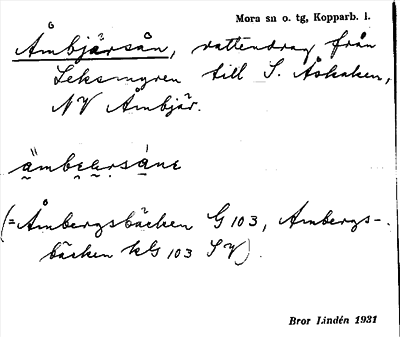 Mora sn o. tg, Kopparb. l.
Åmbjärsån, vattendrag från
Leksmyren till S. Åskaken,
NV Åmbjär.
ä̀mbęrsánɛ
(= Åmbergsbäcken G 103, Ambergs-
bäcken kG 103 SV).
Bror Lindén 1931